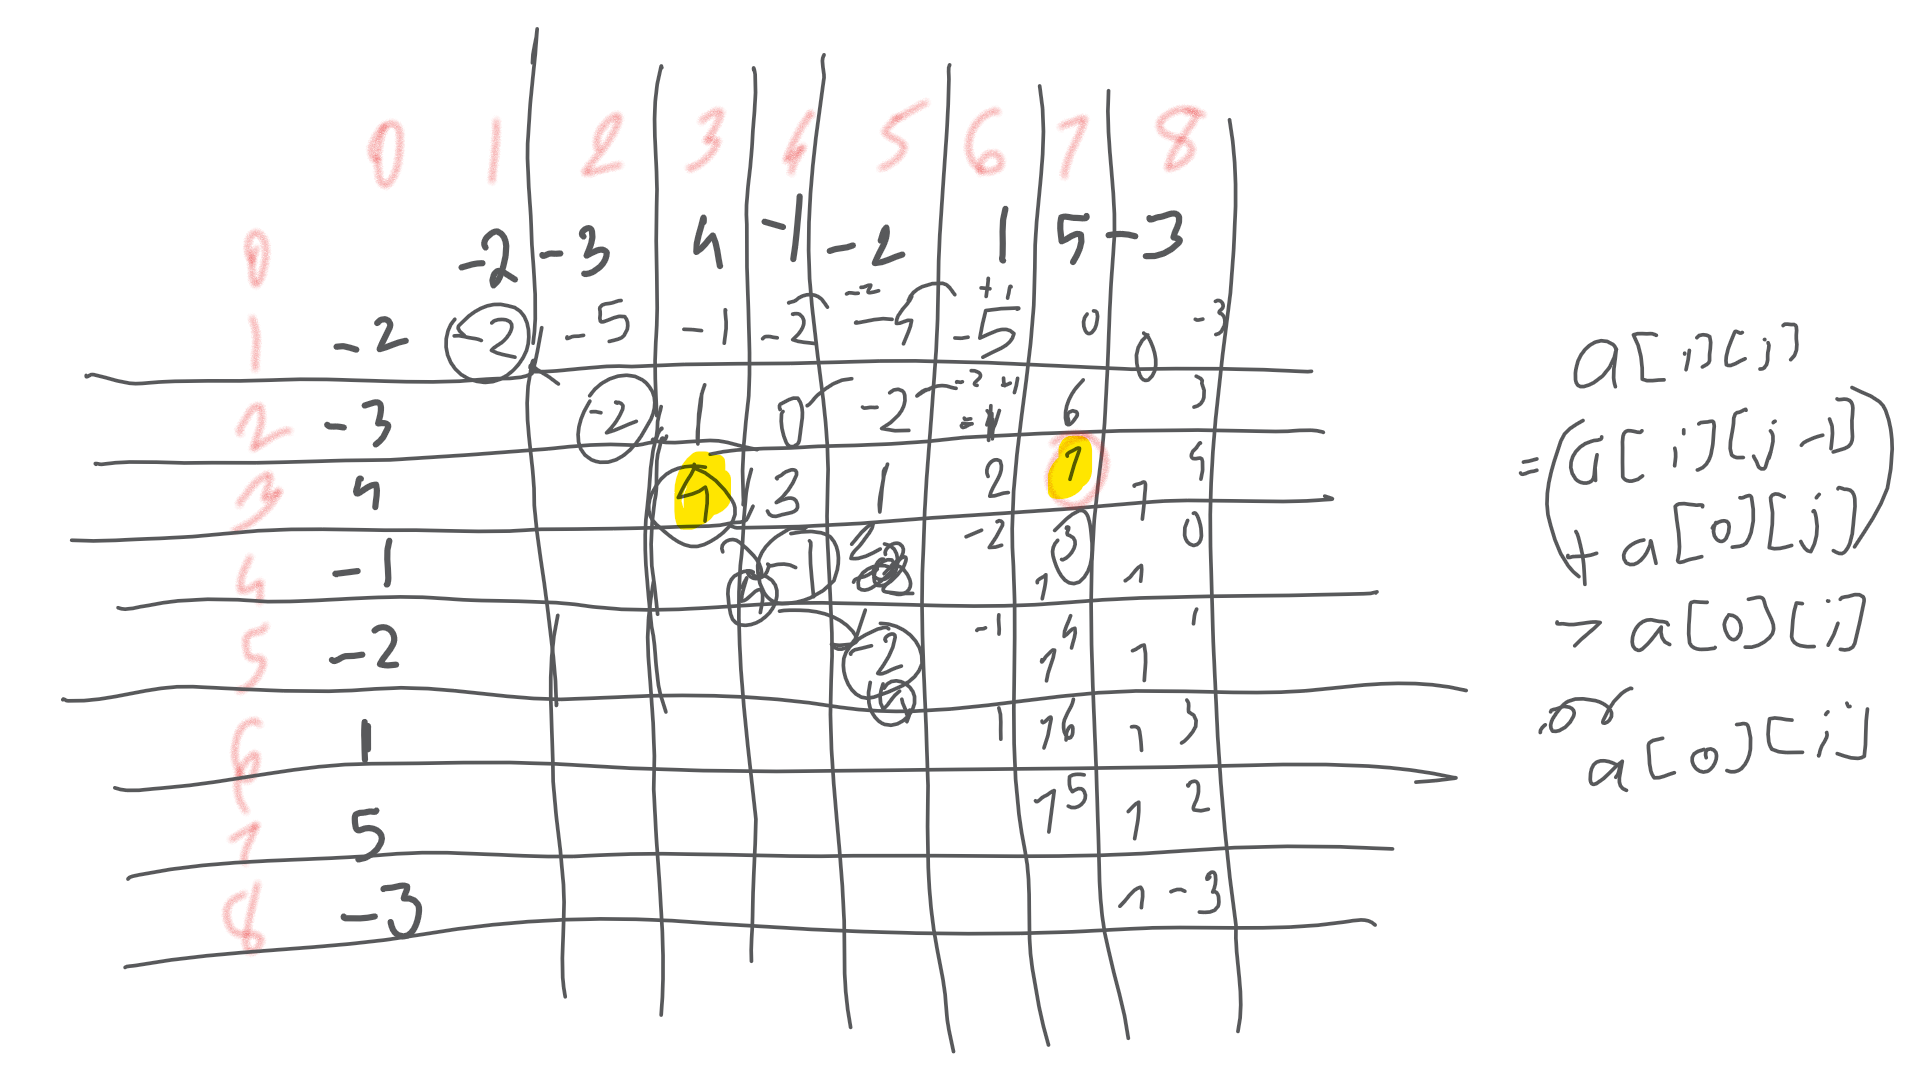 0 1 2 3 4 5 6 7 8
0 -2 -3 4 -1 -2 1 5 -3
-2 +1
1 -2 -2 -5 -1 -2 -4 -5 0 0 -3
-2 +1
2 -3 -2 1 0 -2 = 6 3
3 4 4 3 1 2 7 7 4
4 -1 -1 2 -2 7 3 7 0
5 -2 -2 -1 7 4 7 1
6 1 1 7 6 7 3
7 5 7 5 7 2
8 -3 7 -3
a[i][j]
=(a[i][j-1]
+ a[0][j])
> a[0][i]
or
a[0][i]